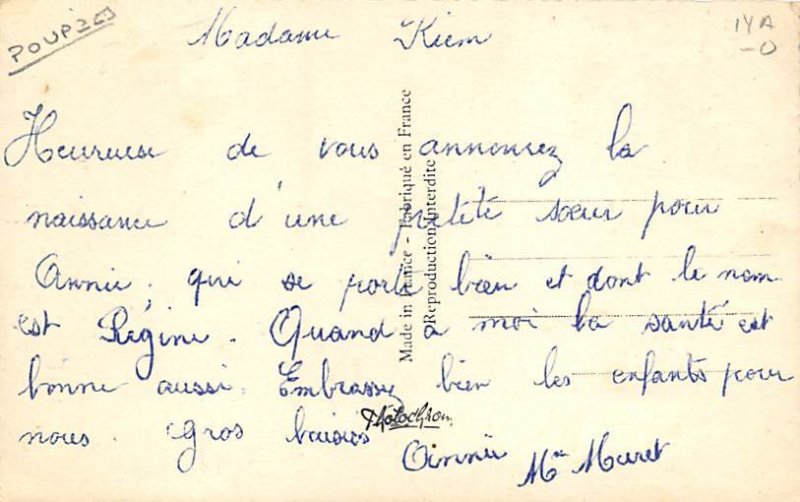 POUPÉES
Madame Kiem
Heureuse de vous annoncez la
naissance d'une petite sœur pour
Annie, qui se porte bien et dont le nom
est Régine. Quand à moi la santé est
bonne aussi. Embrassez bien les enfants pour
nous. Gros baisers
Annie Mme Muret
Made in France - Fabriqué en France
Reproduction Interdite
Photochrom